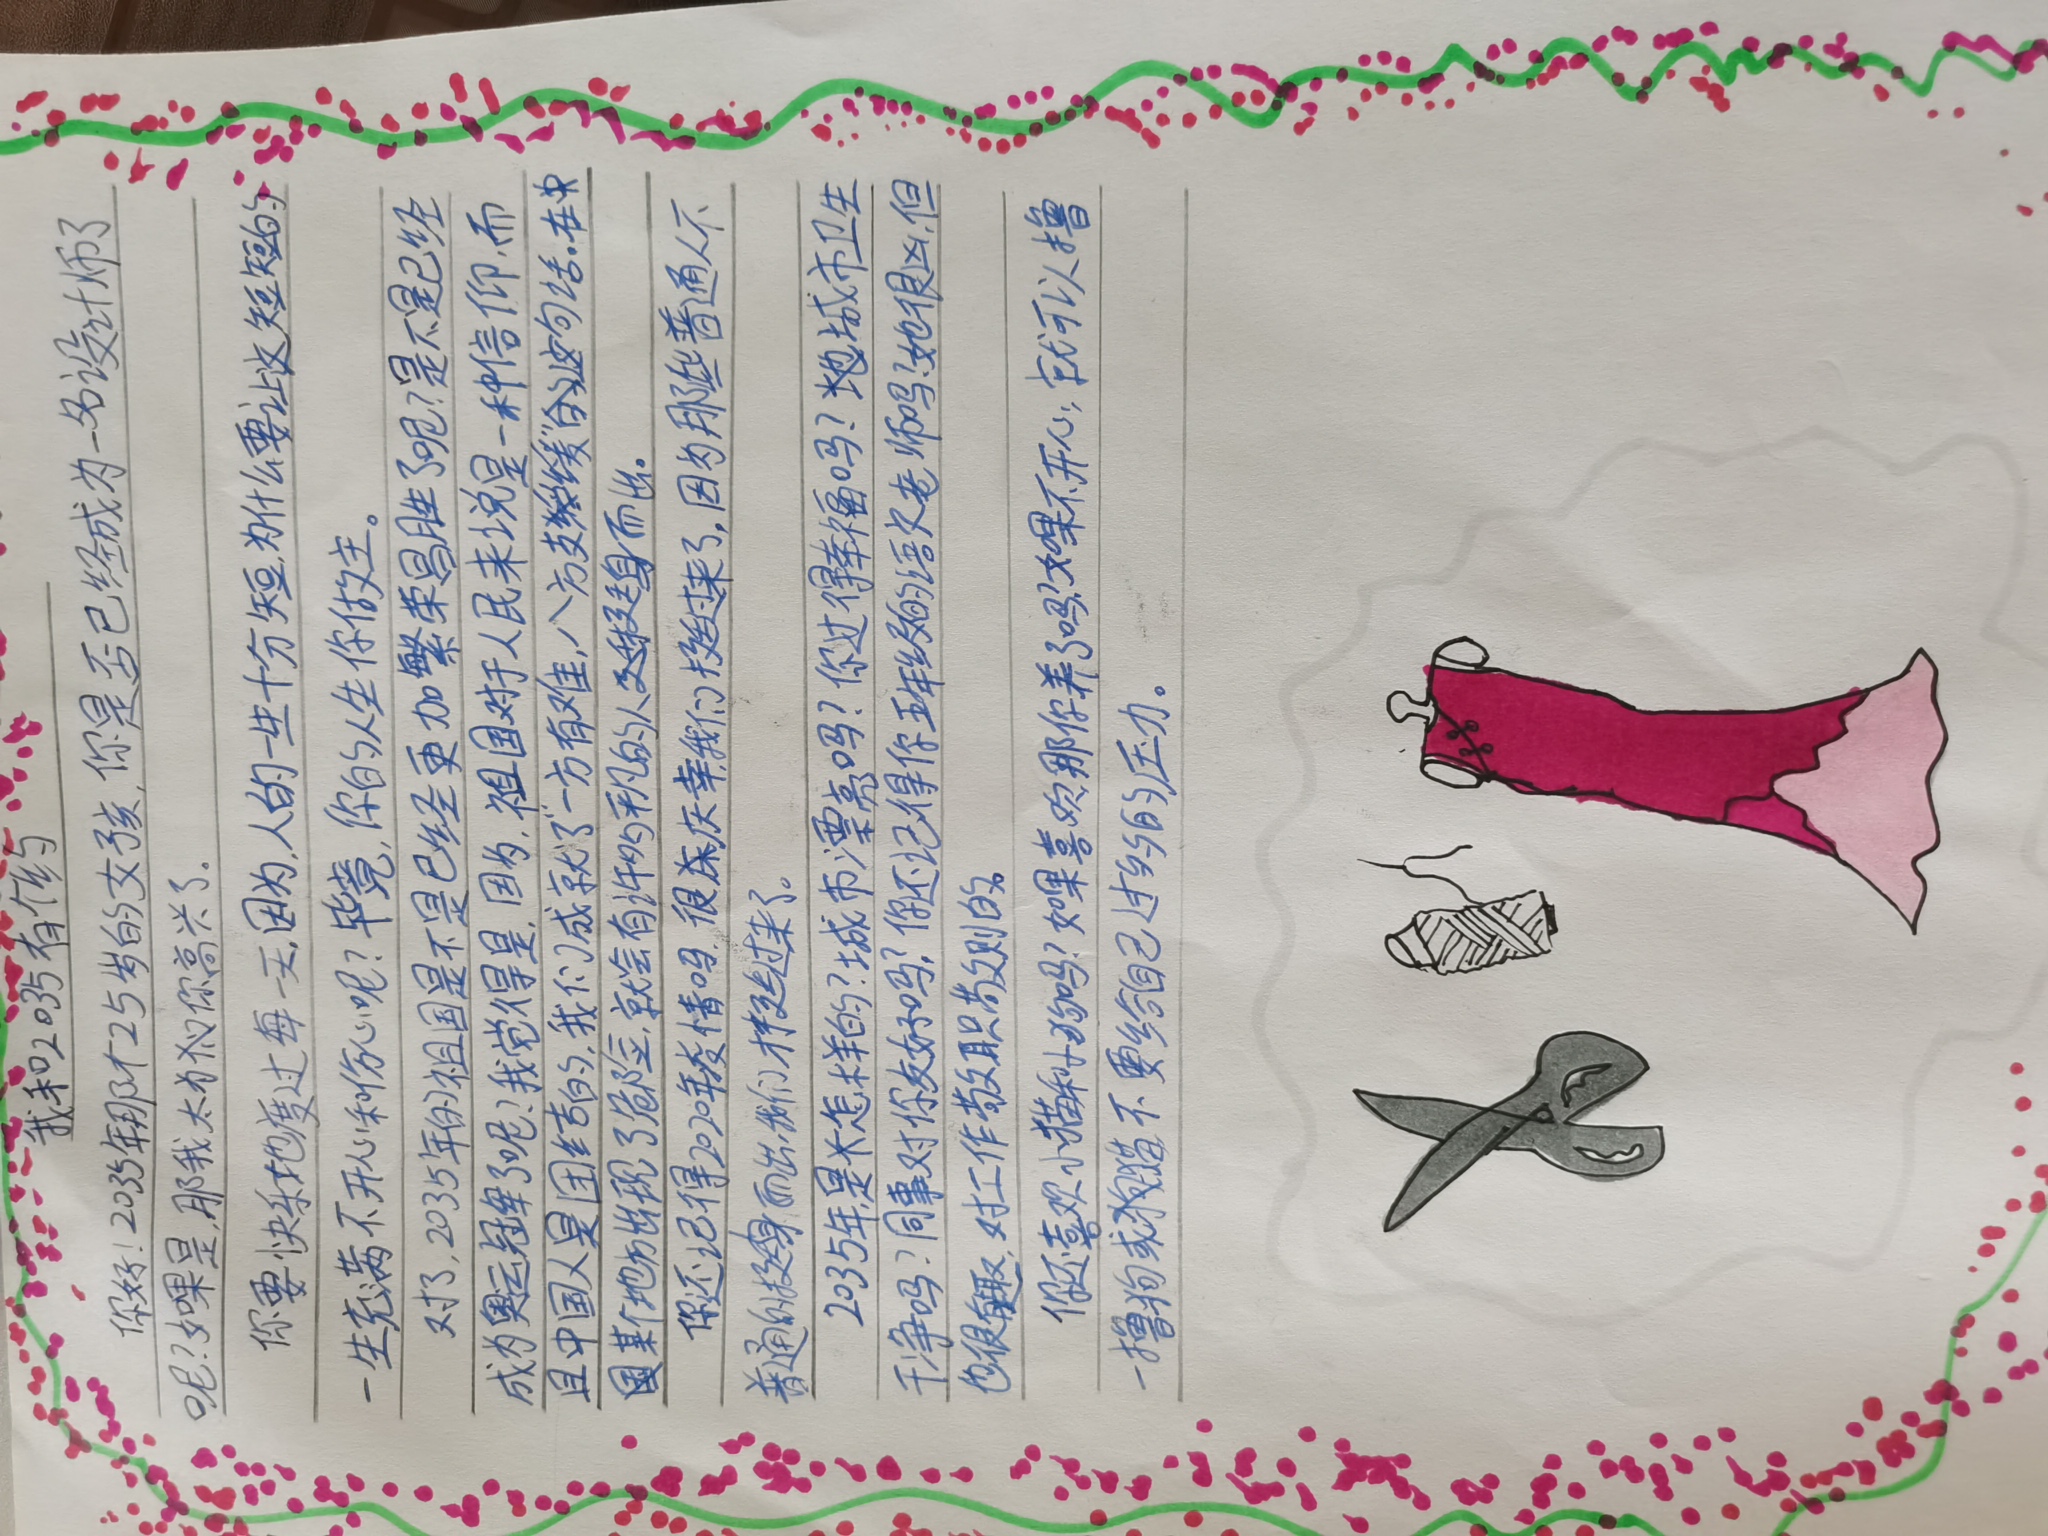 我和2035有个约
你好！2035年那个25岁的女孩，你是否已经成为一名设计师了
呢？如果是，那我太为你高兴了。
你要快乐地度过每一天，因为，人的一生十分短，为什么要让这短短的
一生充满不开心和伤心呢？毕竟，你的人生你做主。
对了，2035年的祖国是不是已经更加繁荣昌胜了呢？是不是已经
成为奥运冠军了呢？我觉得是，因为，祖国对于人民来说是一种信仰，而
且中国人是团结的，我们成就了“一方有难，八方支援”的这句话。在中
国某个地方出现了危险，就会有许多的人挺身而出。
你还记得2020年疫情吗，很庆幸我们挺过来了，因为那些普通人不
普通的挺身而出，我们才挺过来了。
2035年，是怎样的？城市漂亮吗？你过得幸福吗？地城市卫生
干净吗？同事对你友好吗？你还记得你五年级的语文老师吗？她很凶，但
也很有趣，对工作敬职敬则的。
你还喜欢小猫和小狗吗？如果喜欢那你养了吗？如果不开心，就可以撸
一撸狗或猫不要给自己过多的压力。